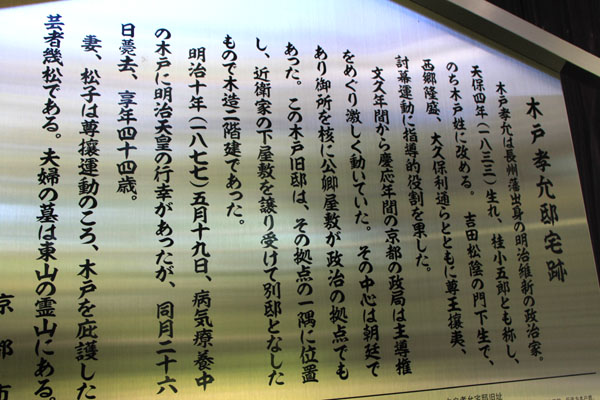 木戸孝允邸宅跡
木戸孝允は長州藩出身の明治維新の政治家。
天保四年(一八三三)生れ、桂小五郎とも称し、
のち木戸姓に改める。 吉田松陰の門下生で、
西郷隆盛、大久保利通らとともに尊王攘夷、
討幕運動に指導的役割を果した。
文久年間から慶応年間の京都の政局は主導権
をめぐり激しく動いていた。その中心は朝廷で
あり御所を核に公卿屋敷が政治の拠点でも
あった。この木戸旧邸は、その拠点の一隅に位置
し、近衛家の下屋敷を譲り受けて別邸となした
もので木造二階建であった。
明治十年(一八七七)五月十九日、病気療養中
の木戸に明治天皇の行幸があったが、同月二十六
日薨去、享年四十四歳。
妻、松子は尊攘運動のころ、木戸を庇護した
芸者幾松である。夫婦の墓は東山の霊山にある。
京都市